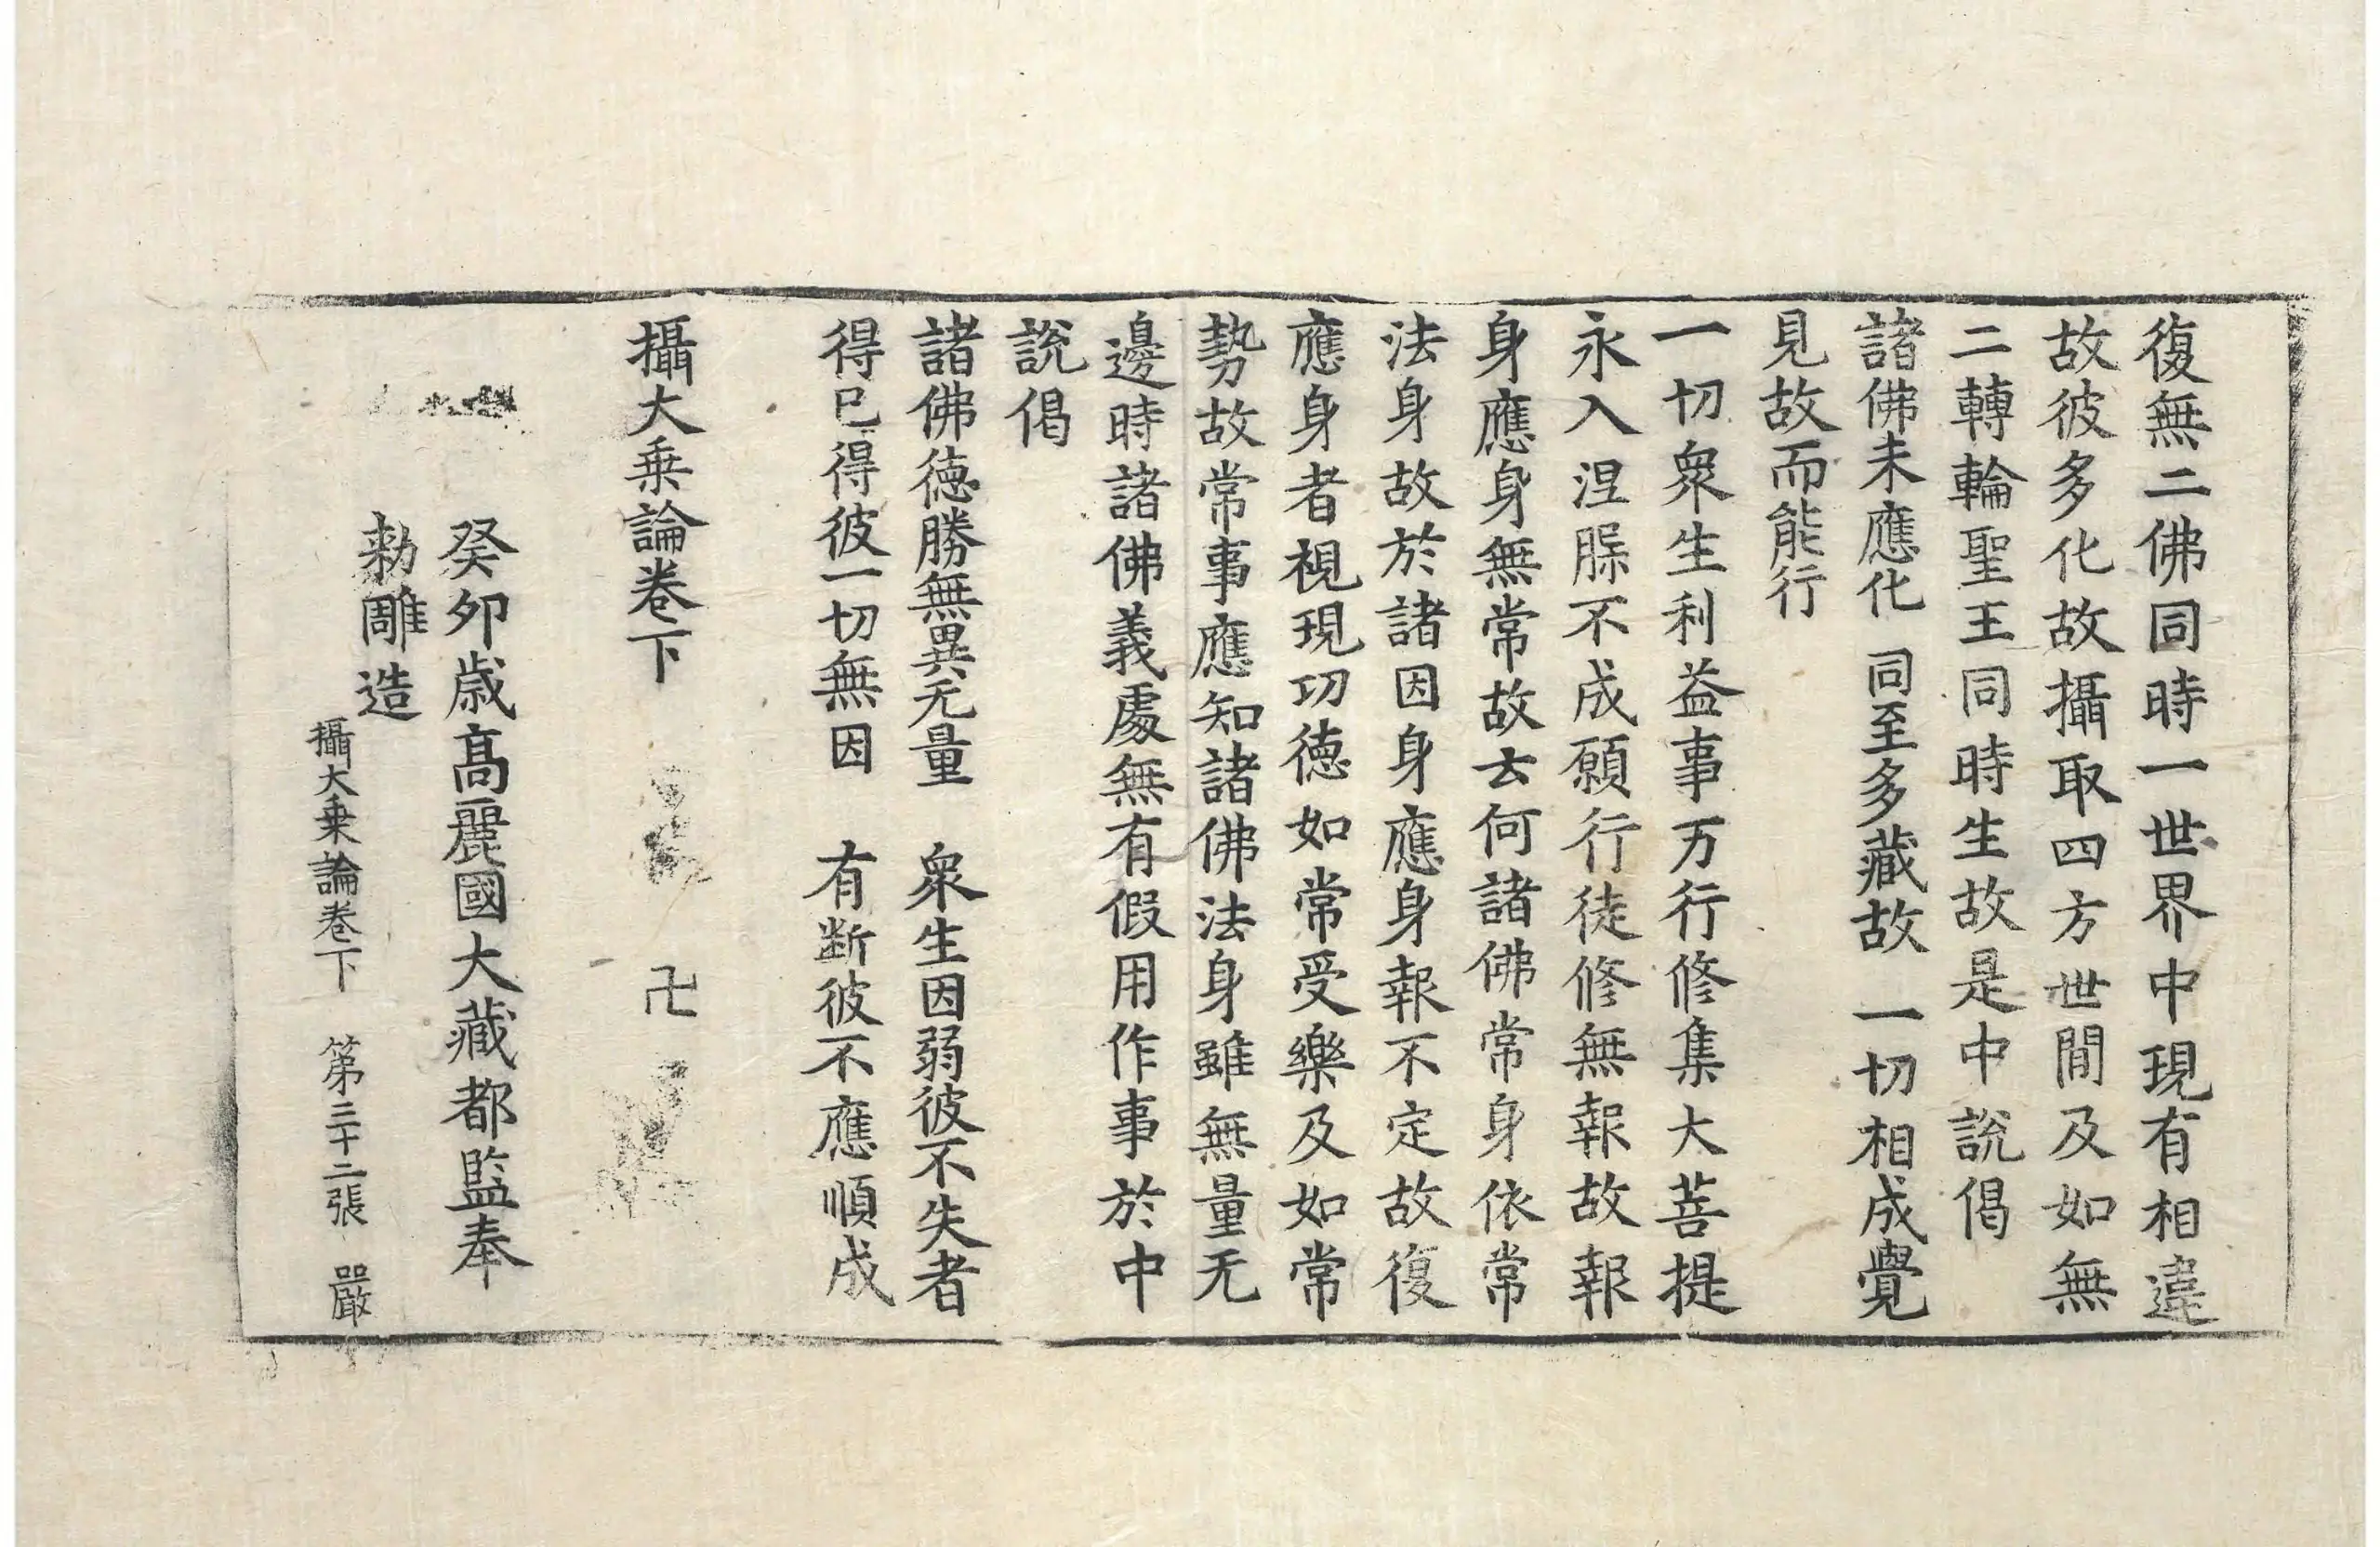 復無二佛同時一世界中現有相違
故彼多化故攝取四方世間及如無
二轉輪聖王同時生故是中說偈
諸佛未應化 同至多藏故 一切相成覺
見故而能行
一切衆生利益事万行修集大菩提
永入涅𦡀不成願行徒修無報故報
身應身無常故云何諸佛常身依常
法身故於諸因身應身報不定故復
應身者視現功德如常受樂及如常
勢故常事應知諸佛法身雖無量无
邊時諸佛義處無有假用作事於中
說偈
諸佛德勝無異无量 衆生因弱彼不失者
得已得彼一切無因 有斷彼不應順成
攝大乗論卷下 卍
癸卯歲髙麗國大藏都監奉
勅雕造
攝大乗論卷下 第三十二張 嚴